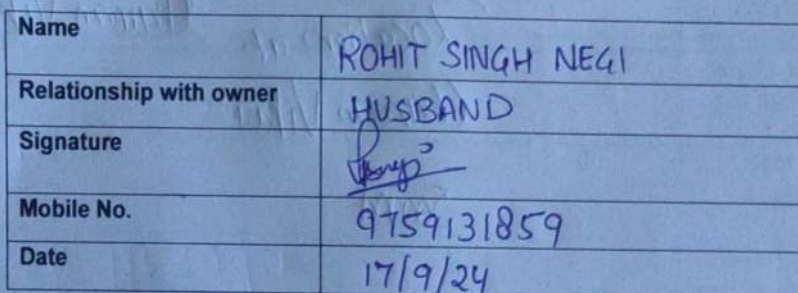 Name ROHIT SINGH NEGI
Relationship with owner HUSBAND
Signature
Mobile No. 9759131859
Date 17/9/24